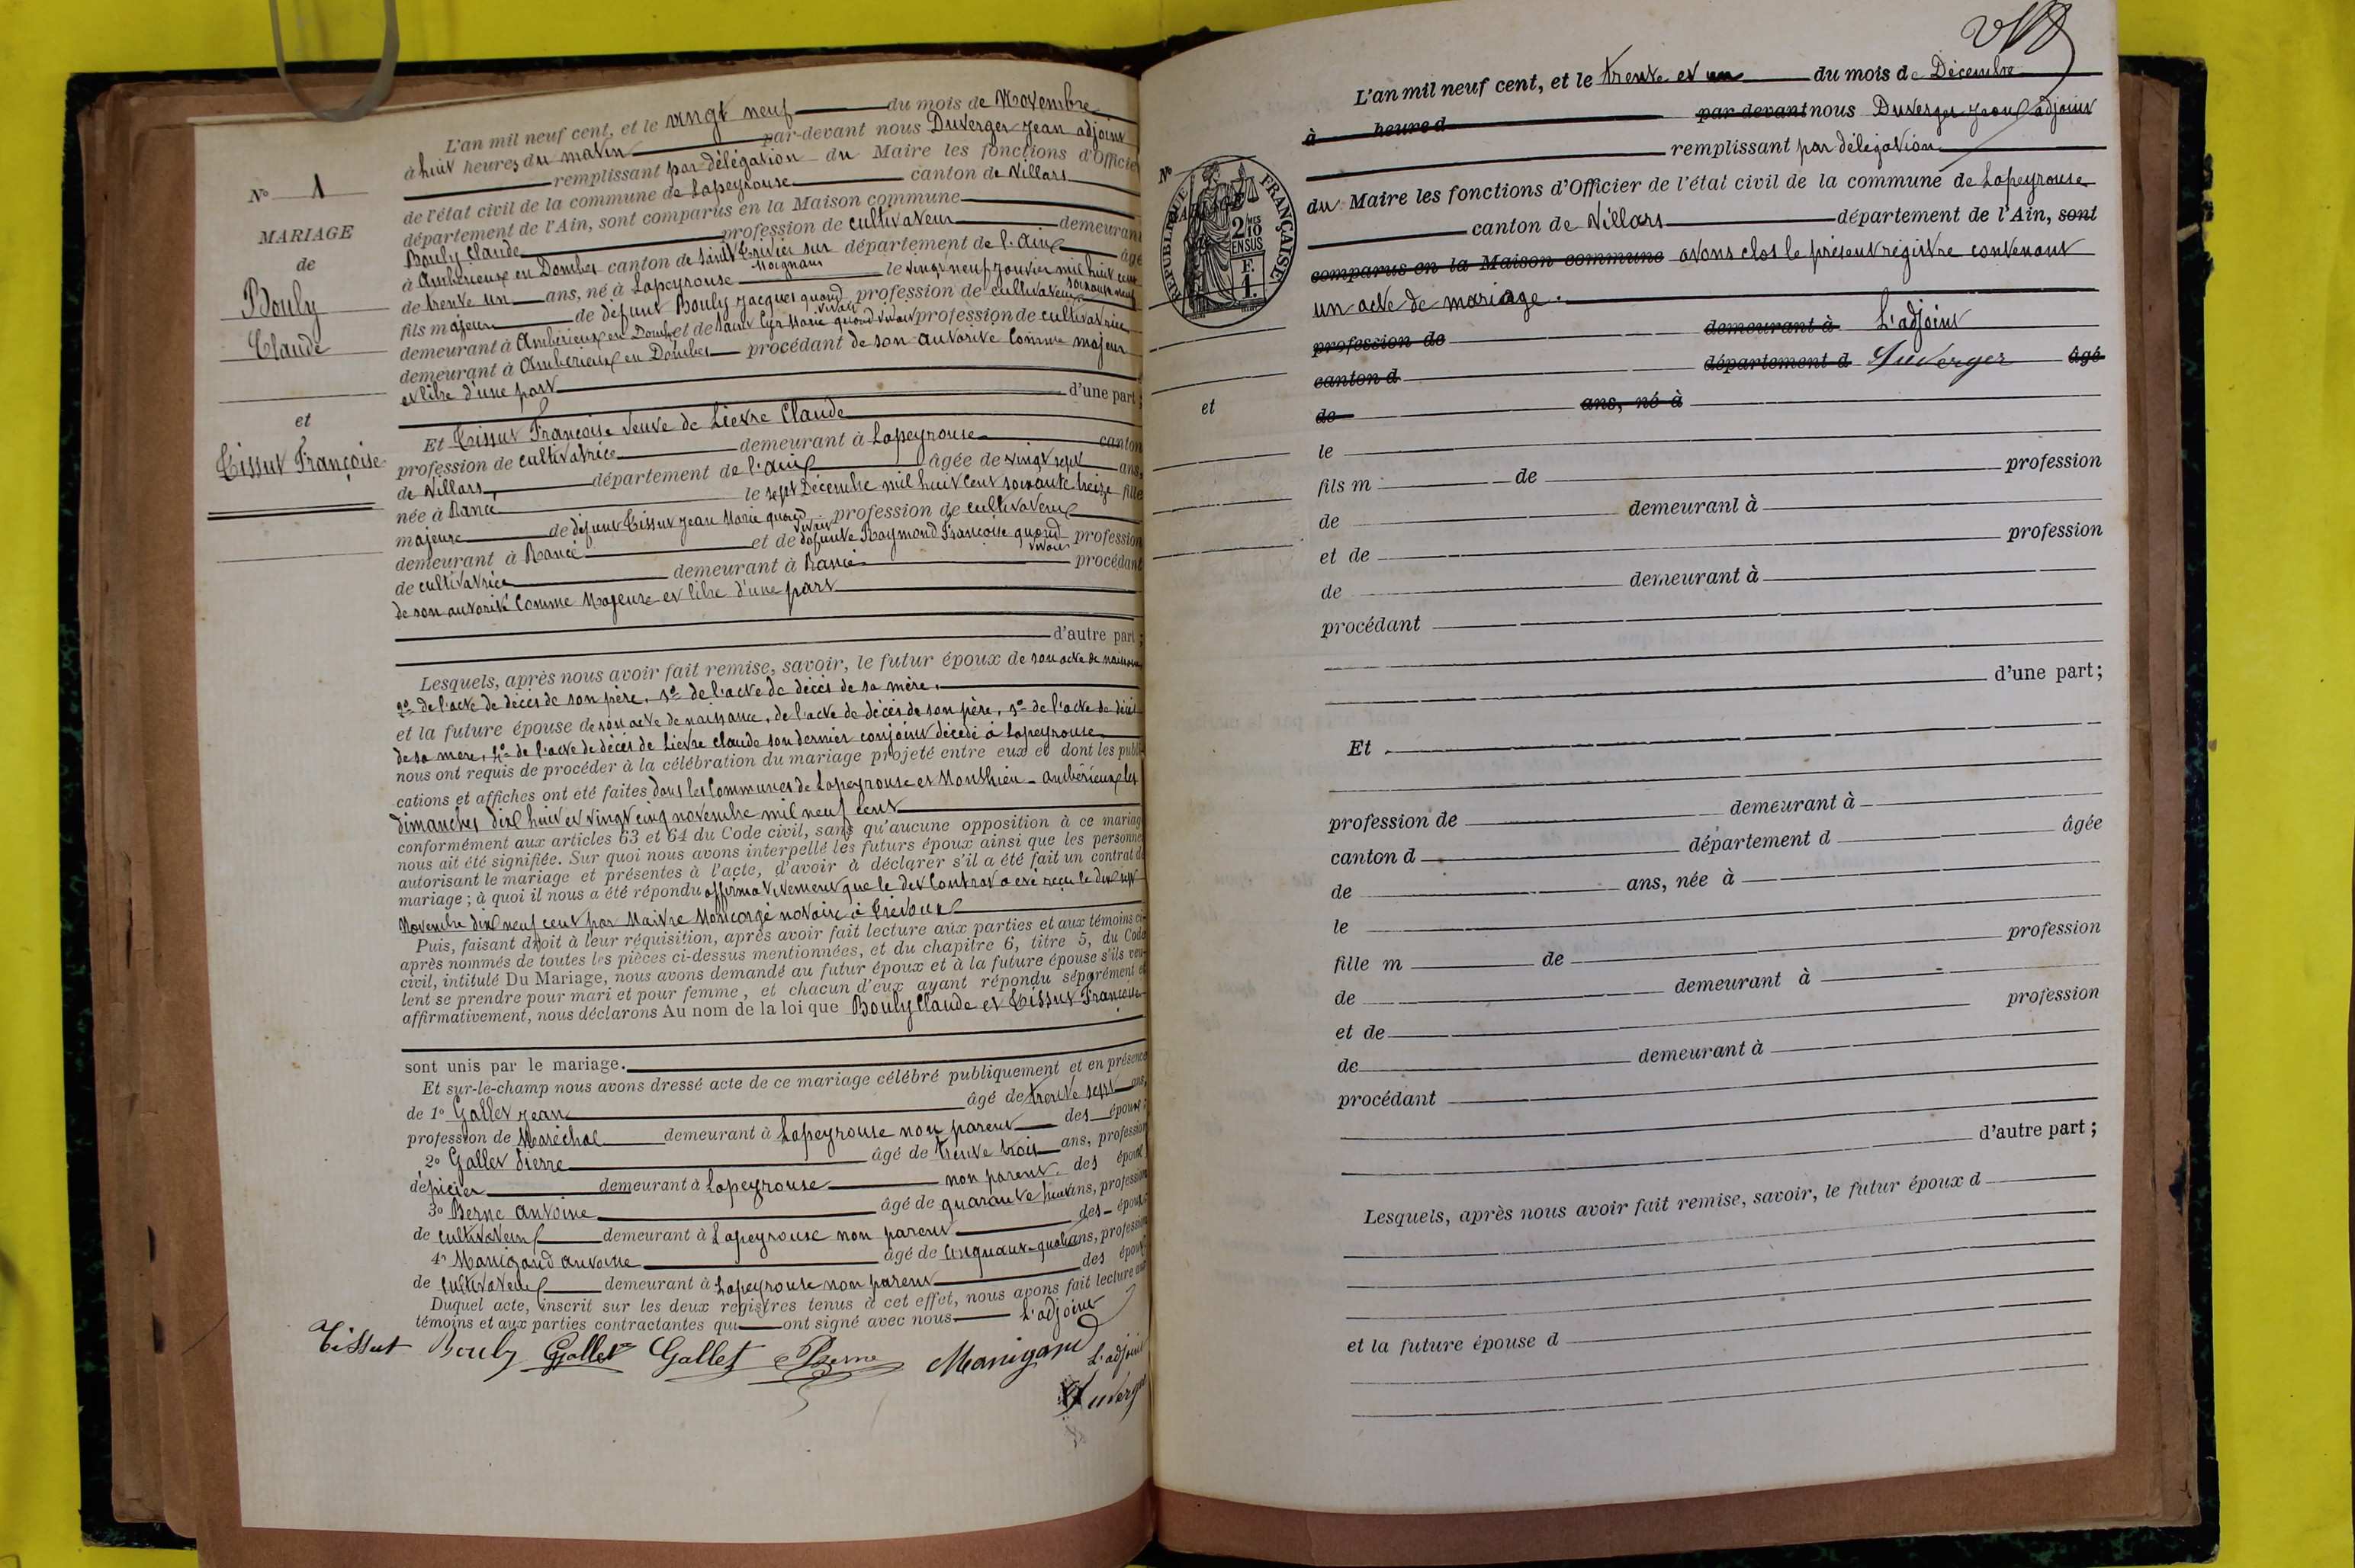 N° 1
MARIAGE
de
Bouly
Claude
et
Tissut Françoise
L'an mil neuf cent, et le vingt neuf du mois de Novembre
à huit heures du matin par-devant nous Duverger Jean adjoint
remplissant par délégation du Maire les fonctions d'Officier
de l'état civil de la commune de Lapeyrouse canton de Villars
département de l'Ain, sont comparus en la Maison commune
Bouly Claude profession de cultivateur demeurant
à Ambérieux en Dombes canton de Saint Trivier sur Moignans département de l'Ain âgé
de trente un ans, né à Lapeyrouse le vingt neuf Janvier mil huit cent soixante neuf
fils majeur de défunt Bouly Jacques quand vivait profession de cultivateur
demeurant à Ambérieux en Dombes et de Saint Cyr Marie quand vivait profession de cultivatrice
demeurant à Ambérieux en Dombes procédant de son autorité comme majeur
et libre d'une part
d'une part;
Et Tissut Françoise veuve de Lievre Claude
profession de cultivatrice demeurant à Lapeyrouse canton
de Villars, département de l'Ain âgée de vingt sept ans,
née à Rancé le sept Décembre mil huit cent soixante treize fille
majeure de défunt Tissut Jean Marie quand vivait profession de cultivateur
demeurant à Rancé et de défunte Raymond Françoise quand vivait profession
de cultivatrice demeurant à Rancé procédant
de son autorité comme Majeure et libre d'une part
d'autre part;
Lesquels, après nous avoir fait remise, savoir, le futur époux de son acte de naissance
2° de l'acte de décès de son père, 3° de l'acte de décès de sa mère,
et la future épouse de son acte de naissance, de l'acte de décès de son père, 3° de l'acte de décès
de sa mère, 4° de l'acte de décès de Lievre Claude son dernier conjoint décédé à Lapeyrouse
nous ont requis de procéder à la célébration du mariage projeté entre eux et dont les publi-
cations et affiches ont été faites dans les Communes de Lapeyrouse et Monthieu - Ambérieux les
dimanches dix huit et vingt cinq novembre mil neuf cent
conformément aux articles 63 et 64 du Code civil, sans qu'aucune opposition à ce mariage
nous ait été signifiée. Sur quoi nous avons interpellé les futurs époux ainsi que les personnes
autorisant le mariage et présentes à l'acte, d'avoir à déclarer s'il a été fait un contrat de
mariage ; à quoi il nous a été répondu affirmativement que le dit contrat a été reçu le dix sept
Novembre dix neuf cent par Maitre Moncorgé notaire à Trévoux
Puis, faisant droit à leur réquisition, après avoir fait lecture aux parties et aux témoins ci-
après nommés de toutes les pièces ci-dessus mentionnées, et du chapitre 6, titre 5, du Code
civil, intitulé Du Mariage, nous avons demandé au futur époux et à la future épouse s'ils veu-
lent se prendre pour mari et pour femme, et chacun d'eux ayant répondu séparément et
affirmativement, nous déclarons Au nom de la loi que Bouly Claude et Tissut Françoise
sont unis par le mariage.
Et sur-le-champ nous avons dressé acte de ce mariage célébré publiquement et en présence
de 1° Gallet Jean âgé de trente sept ans,
profession de Maréchal demeurant à Lapeyrouse non parent des époux;
2° Gallet Pierre âgé de trente trois ans, profession
d'épicier demeurant à Lapeyrouse non parent des époux
3° Berne Antoine âgé de quarante huit ans, profession
de cultivateur demeurant à Lapeyrouse non parent des époux
4° Manigand Antoine âgé de cinquante quatre ans, profession
de cultivateur demeurant à Lapeyrouse non parent des époux
Duquel acte, inscrit sur les deux registres tenus à cet effet, nous avons fait lecture aux
témoins et aux parties contractantes qui ont signé avec nous L'adjoint
Tissut Bouly Gallet Gallet Berne Manigand L'adjoint
Duverger
L'an mil neuf cent, et le trente et un du mois de Décembre
à heure d par devant nous Duverger Jean adjoint
remplissant par délégation
du Maire les fonctions d'Officier de l'état civil de la commune de Lapeyrouse
canton de Villars département de l'Ain, sont
comparus en la Maison commune avons clos le présent registre contenant
un acte de mariage.
profession de demeurant à L'adjoint
canton d département d Duverger âgé
de ans, né à
le
fils m de profession
de demeurant à
et de profession
de demeurant à
procédant
d'une part;
Et
profession de demeurant à
canton d département d âgée
de ans, née à
le
fille m de profession
de demeurant à
et de profession
de demeurant à
procédant
d'autre part;
Lesquels, après nous avoir fait remise, savoir, le futur époux d
et la future épouse d
N°
RÉPUBLIQUE FRANÇAISE
2/10 EN SUS
F.
1.
et